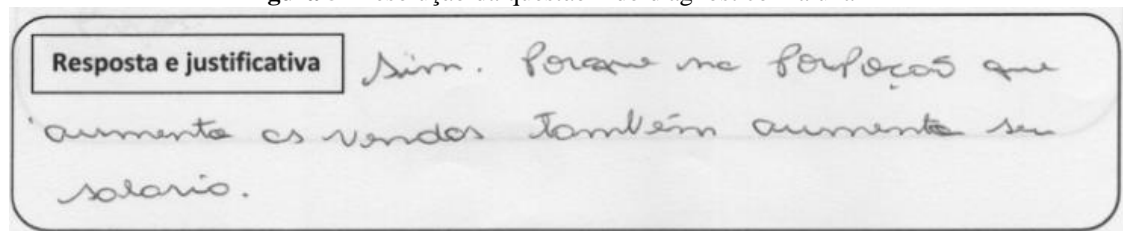 Resposta e justificativa Sim. Porque na porpoçaõ que
aumenta as vendas também aumenta seu
salario.